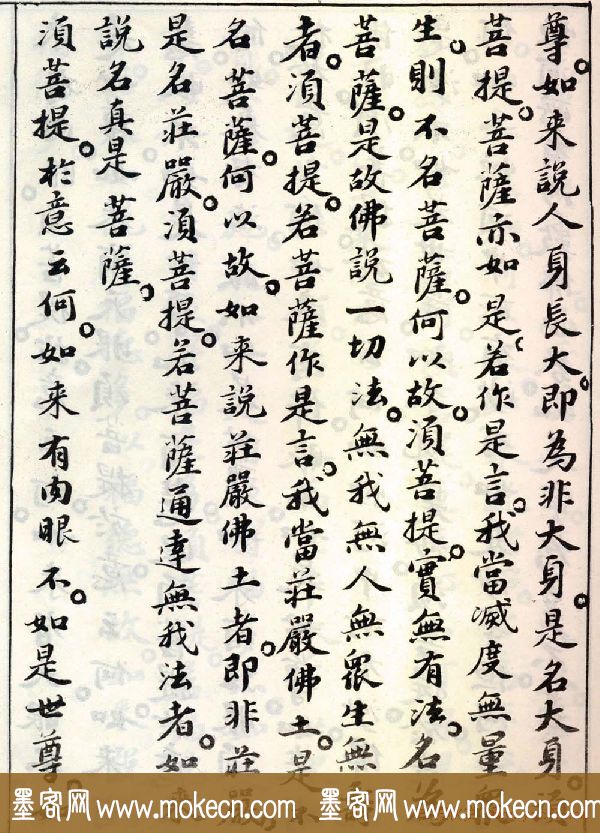 尊。如来說人身長大。即為非大身。是名大身。須
菩提。菩薩亦如是。若作是言。我當滅度無量
生。則不名菩薩。何以故。須菩提。實無有法。名為
菩薩。是故佛說一切法。無我無人無眾生無
者。須菩提。若菩薩作是言。我當莊嚴佛土。是不
名菩薩。何以故。如来說莊嚴佛土者。即非莊嚴。
是名莊嚴。須菩提。若菩薩通達無我法者。如来
說名真是菩薩。
須菩提。於意云何。如来有肉眼不。如是世尊。
墨客网 www.mokecn.com 墨客网 www.mokecn.com